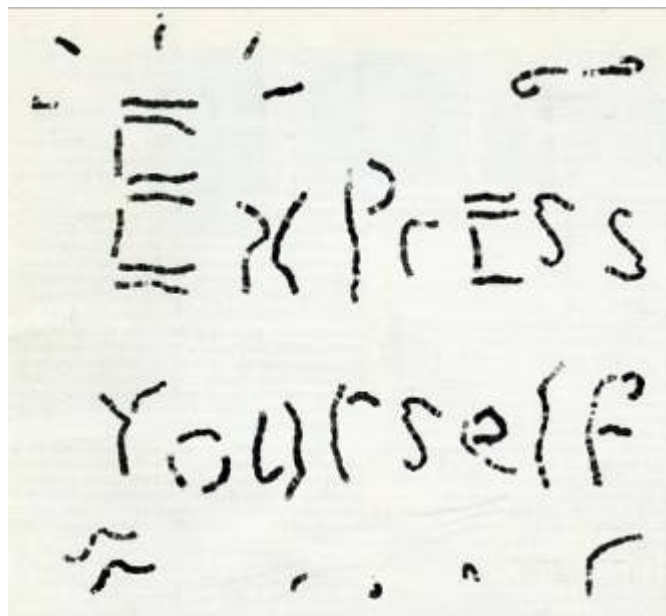 ExPrESS
Yourself